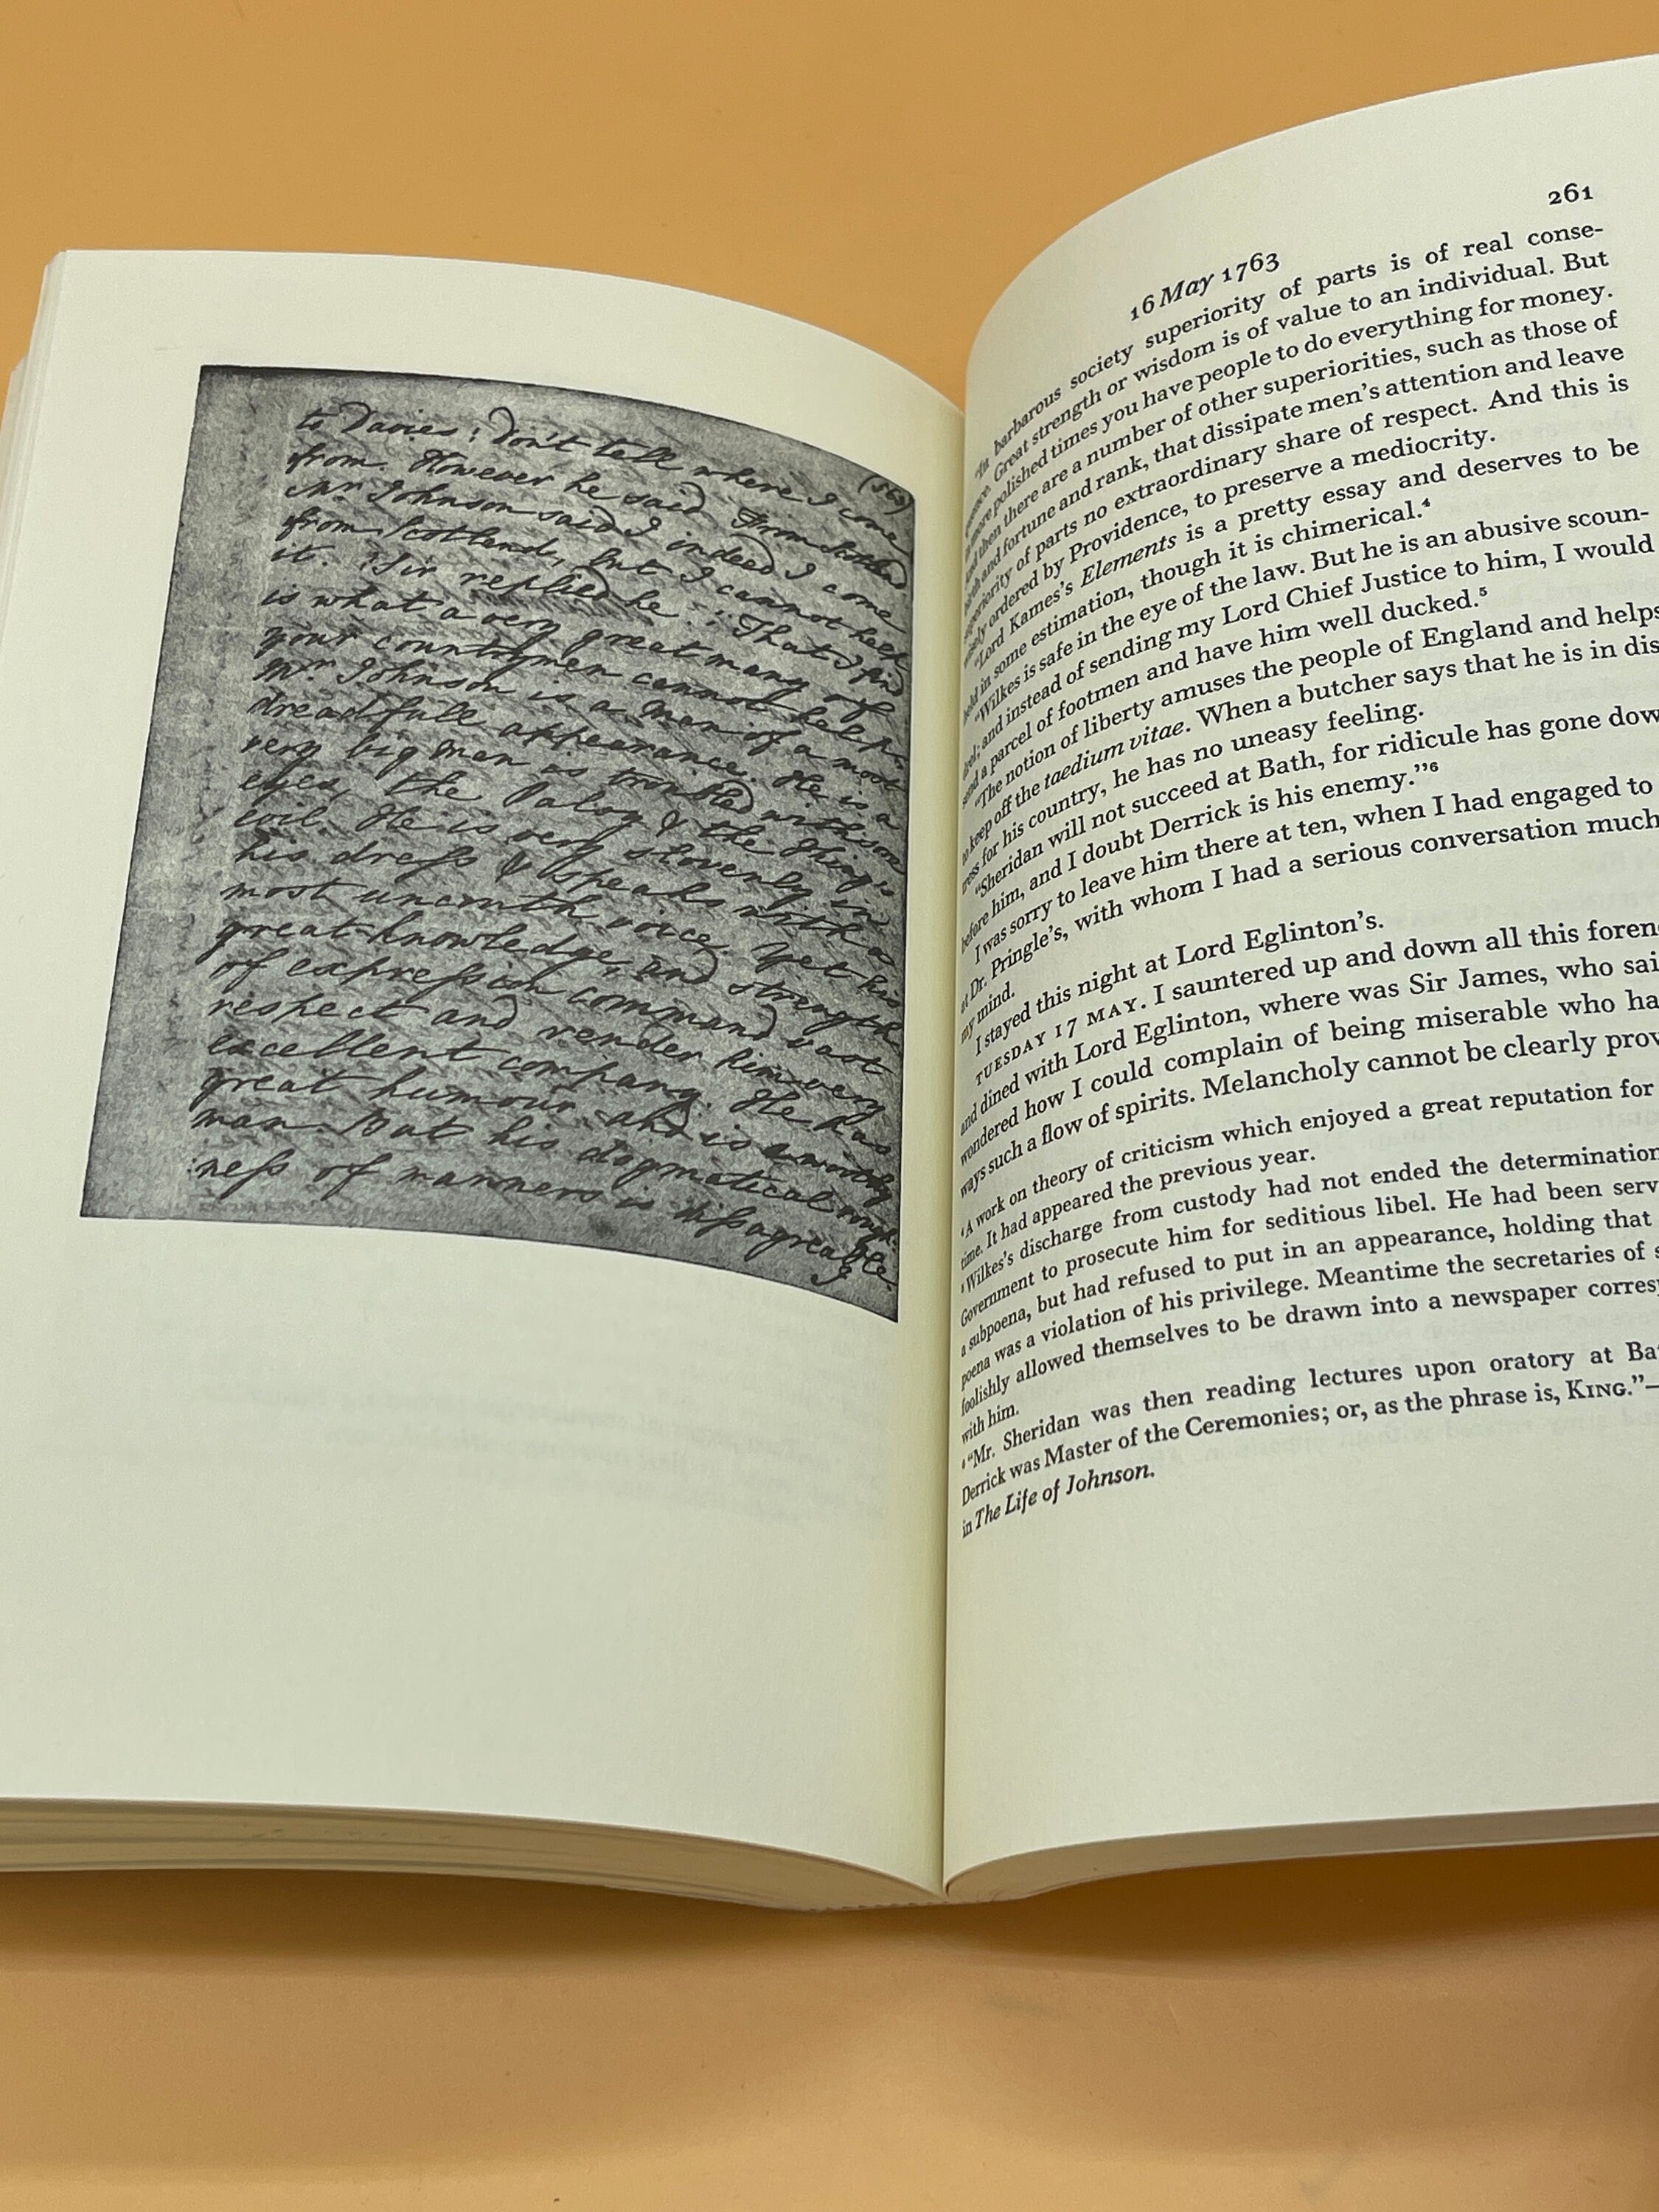 (562)
to Davies; Don't tell where I come
from. However he said From Scotland
Mr Johnson said I indeed I come
from Scotland, but I cannot help
it. Sir replied he: That I find
is what a very great many of
your countrymen cannot help.
Mr. Johnson is a Man of a most
dreadfull appearance. He is a
very big man is troubled with sore
eyes, the Palsy & the King's
evil. He is very slovenly in
his dress & speaks with a
most uncouth voice. Yet his
great knowledge, and strength
of expression command vast
respect and render him very
excellent company. He has
great humour and is a worthy
man. But his dogmatical rough-
ness of manners is disagreable.
I
261
16 May 1763
"In barbarous society superiority of parts is of real conse-
quence. Great strength or wisdom is of value to an individual. But
in more polished times you have people to do everything for money.
And then there are a number of other superiorities, such as those of
birth and fortune and rank, that dissipate men's attention and leave
superiority of parts no extraordinary share of respect. And this is
wisely ordered by Providence, to preserve a mediocrity.
"Lord Kames's Elements is a pretty essay and deserves to be
held in some estimation, though it is chimerical.⁴
"Wilkes is safe in the eye of the law. But he is an abusive scoun-
drel; and instead of sending my Lord Chief Justice to him, I would
send a parcel of footmen and have him well ducked.⁵
"The notion of liberty amuses the people of England and helps
to keep off the taedium vitae. When a butcher says that he is in dis
tress for his country, he has no uneasy feeling.
"Sheridan will not succeed at Bath, for ridicule has gone dow
before him, and I doubt Derrick is his enemy."⁶
I was sorry to leave him there at ten, when I had engaged to
at Dr. Pringle's, with whom I had a serious conversation much
my mind.
I stayed this night at Lord Eglinton's.
TUESDAY 17 MAY. I sauntered up and down all this foren
and dined with Lord Eglinton, where was Sir James, who sai
wondered how I could complain of being miserable who ha
ways such a flow of spirits. Melancholy cannot be clearly prov
⁴ A work on theory of criticism which enjoyed a great reputation for
time. It had appeared the previous year.
⁵ Wilkes's discharge from custody had not ended the determination
Government to prosecute him for seditious libel. He had been serv
a subpoena, but had refused to put in an appearance, holding that
poena was a violation of his privilege. Meantime the secretaries of s
foolishly allowed themselves to be drawn into a newspaper corresp
with him.
⁶ "Mr. Sheridan was then reading lectures upon oratory at Ba
Derrick was Master of the Ceremonies; or, as the phrase is, KING."—
in The Life of Johnson.